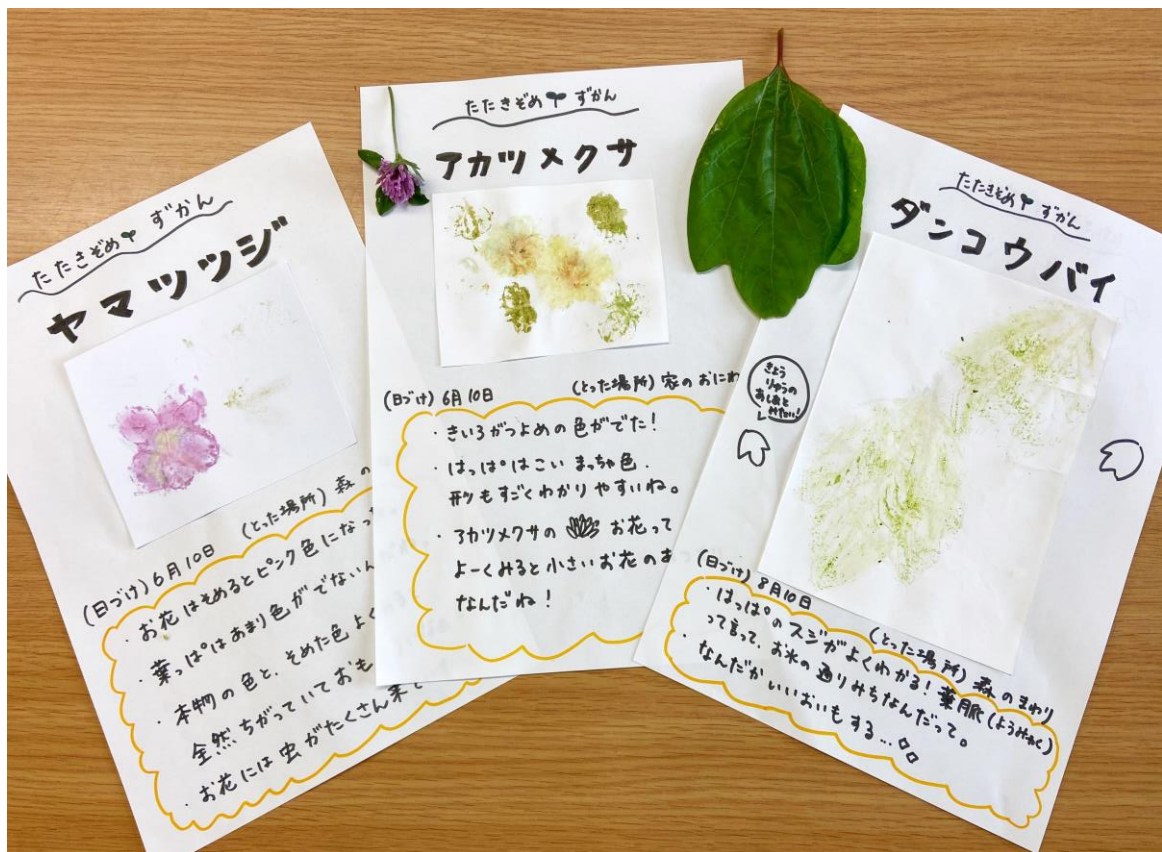 たたきぞめ ずかん
ヤマツツジ
(日づけ) 6月10日 (とった場所) 森の
・お花はそめるとピンク色になっ
・葉っぱはあまり色がでないん
・本物の色と、そめた色よく
全然ちがっていておも
・お花には虫がたくさん来て
たたきぞめ ずかん
アカツメクサ
(日づけ) 6月10日 (とった場所) 家のおにわ
・きいろがつよめの色がでた!
・はっぱはこいまっちゃ色.
形もすごくわかりやすいね。
・アカツメクサの お花って
よーくみると小さいお花のあ
なんだね!
たたきぞめ ずかん
ダンコウバイ
きょう
りゅうの
あしあと
みたい!
(日づけ) 8月10日 (とった場所) 森のまわり
・はっぱのスジがよくわかる!葉脈(ようみゃく)
って言って、お水の通りみちなんだって。
・なんだかいいおいもする...